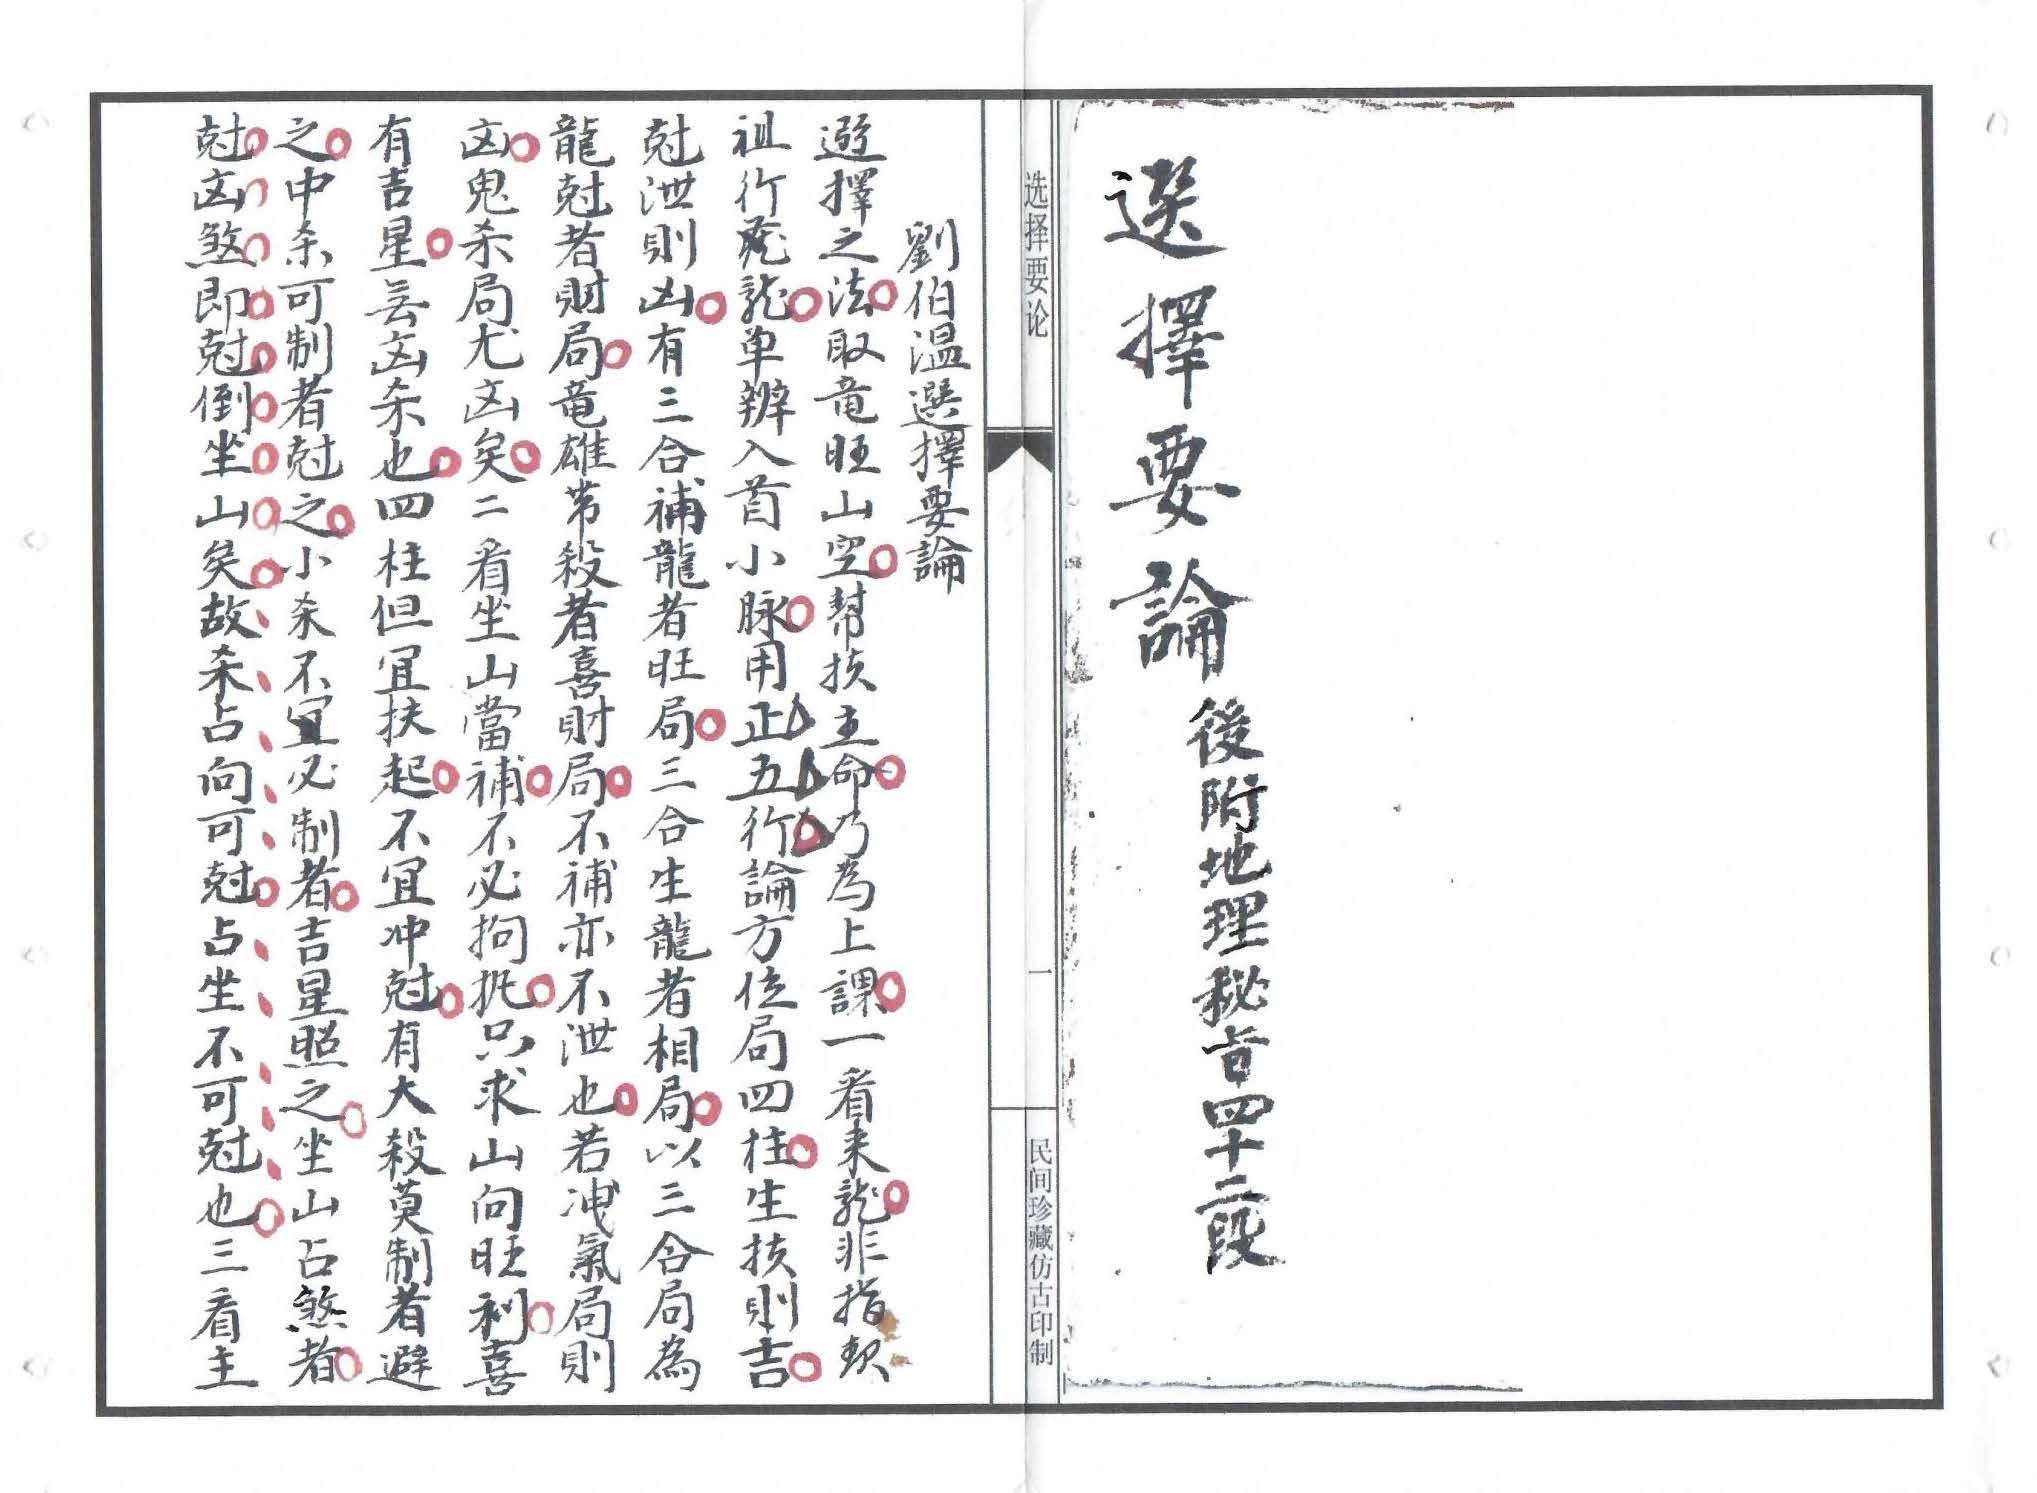 選擇要論
後附地理秘旨四十二段
选择要论
一
民间珍藏仿古印制
劉伯溫選擇要論
選擇之法取竜旺山空幇扶主命乃為上課一看来龍非指
祖行龍单辨入首小脉用正五行論方位局四柱生扶則吉
尅泄則凶有三合補龍者旺局三合生龍者相局以三合局為
龍尅者財局竜雄带殺者喜財局不補亦不泄也若洩氣局則
凶鬼杀局尤凶矣二看坐山當補不必拘扺只求山向旺利喜
有吉星无凶杀也四柱但宜扶起不宜冲尅有大殺莫制者避
之中杀可制者尅之小杀不宜必制者吉星照之坐山占煞者
尅凶煞即尅倒坐山矣故杀占向可尅占坐不可尅也三看主